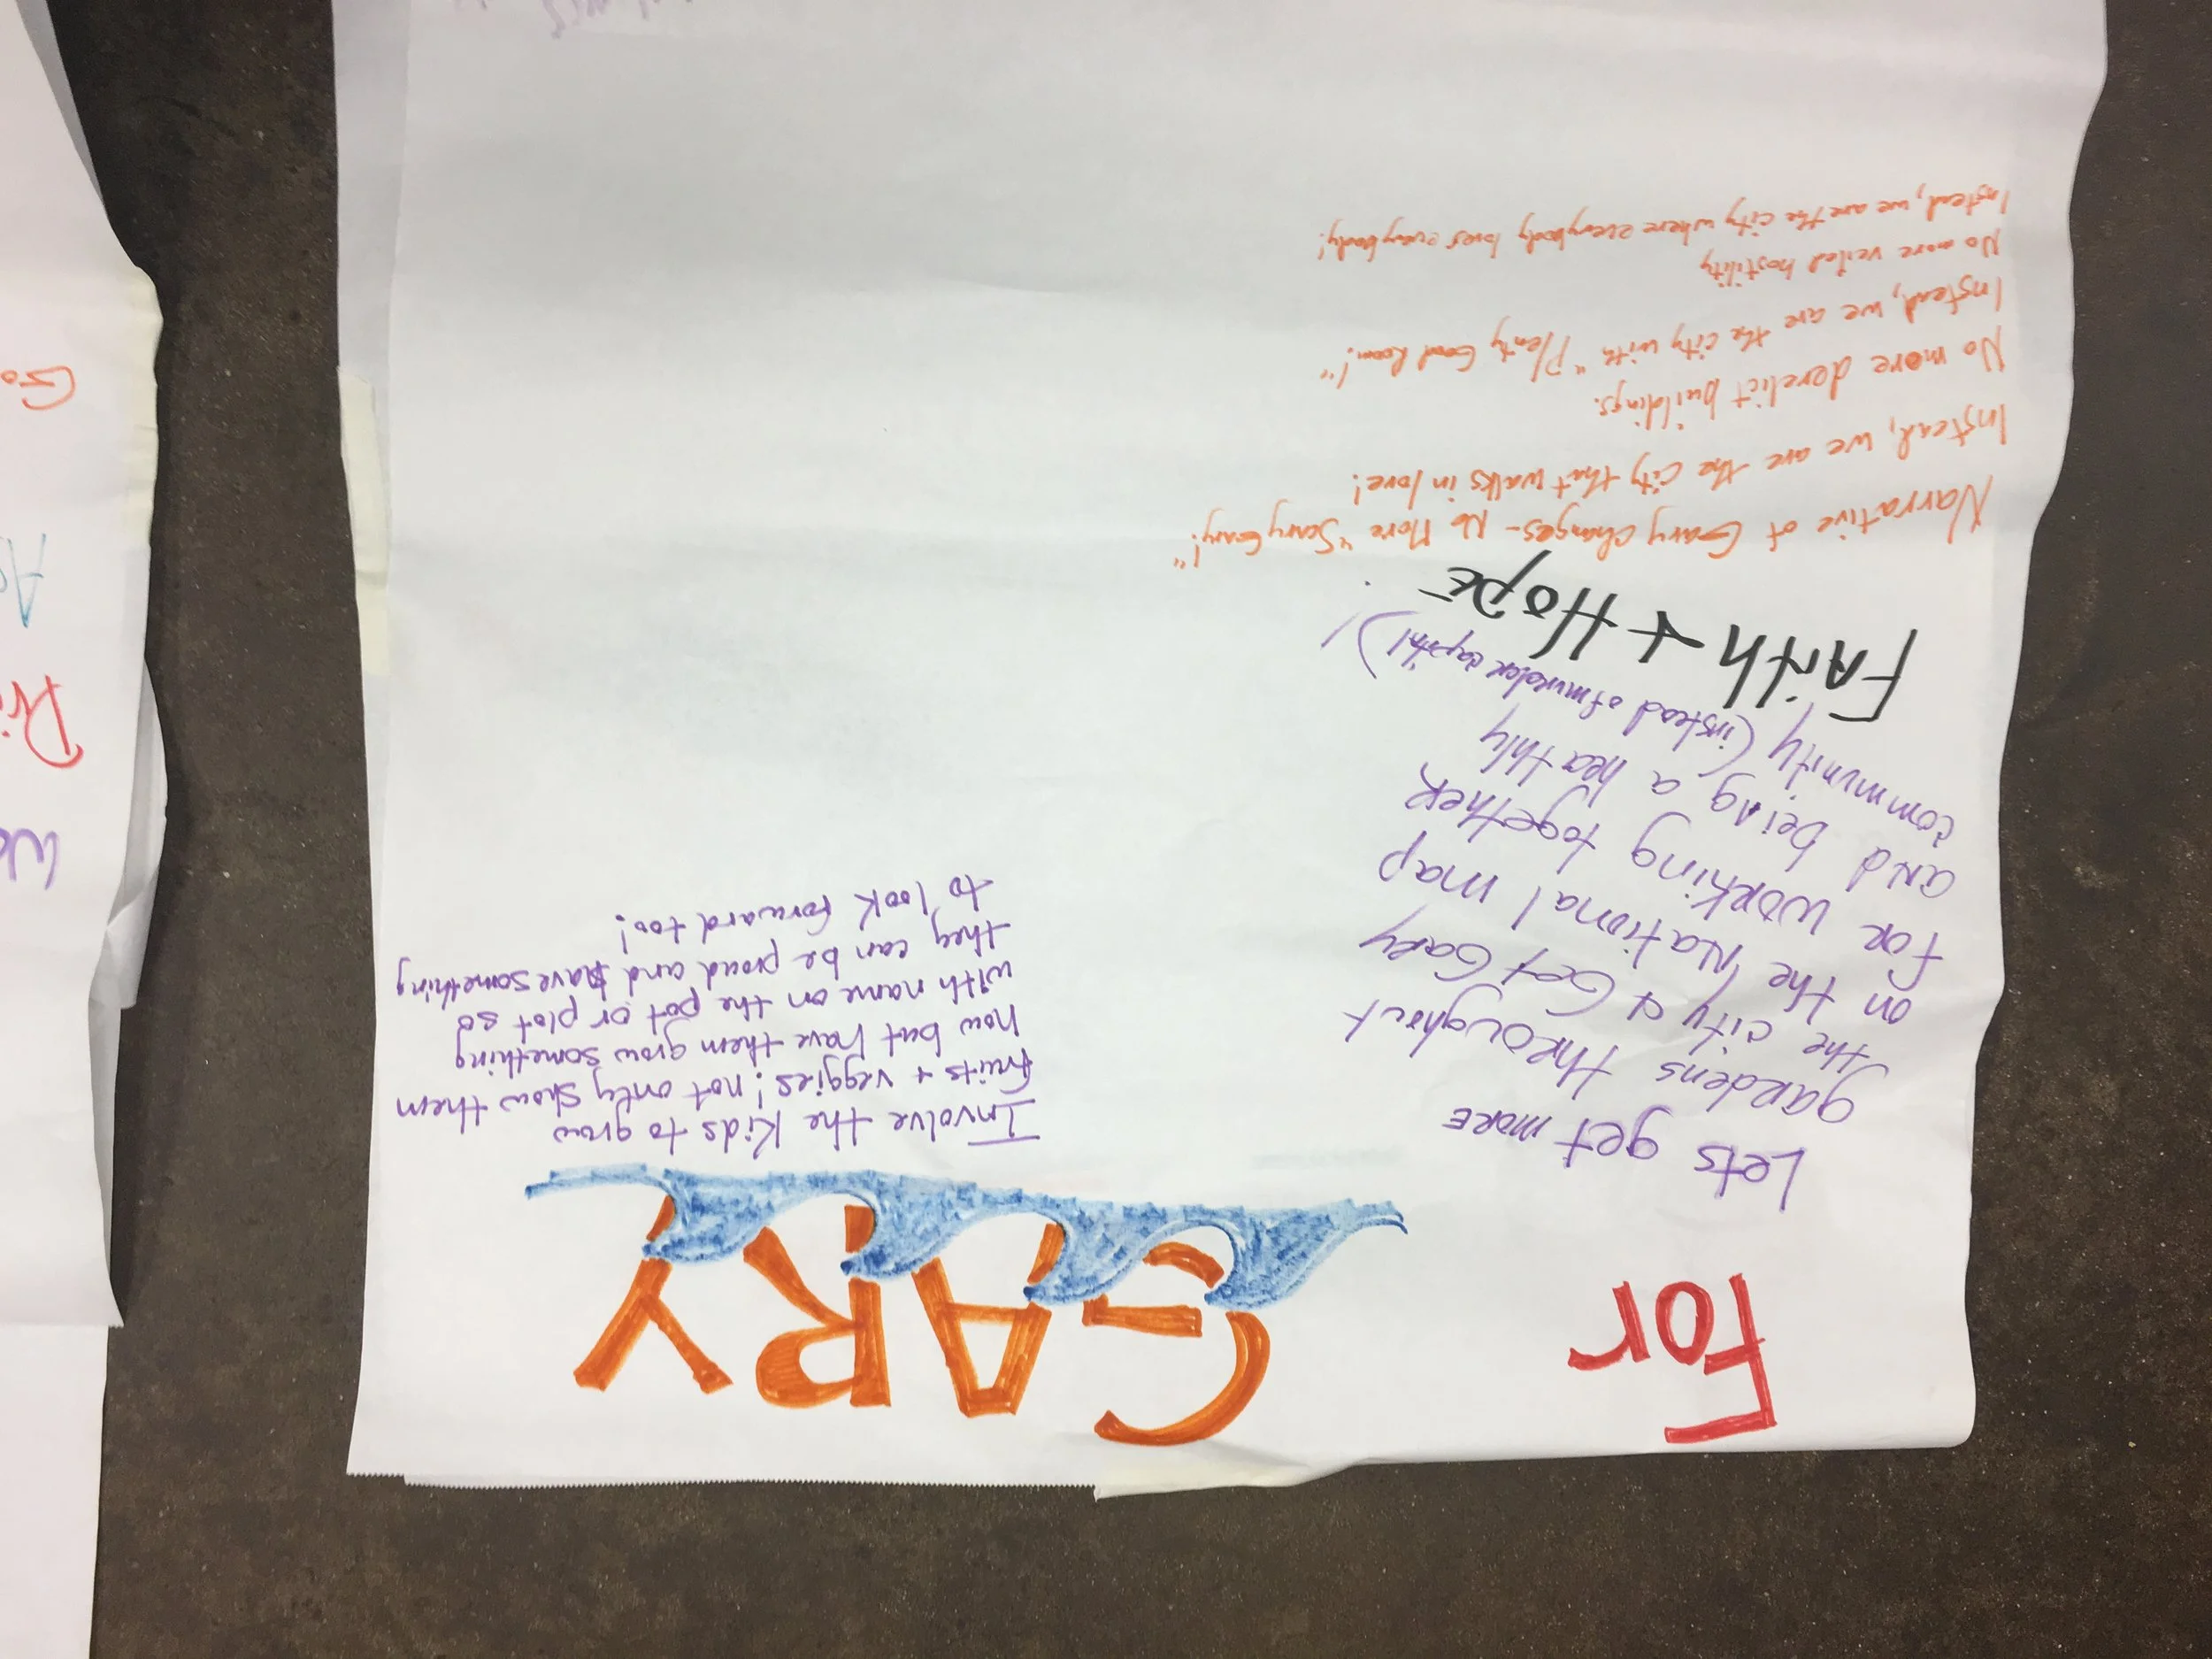 For
GARY
Lets get more
gardens throughout
the city & Get Gary
on the National map
for working together
and being a heathly
community (instead of murder capital)
FAith + Hope
Narrative of Gary changes - No More "Scary Gary!"
Instead, we are the city that walks in love!
No more derelict buildings.
Instead, we are the city with "Plenty Good Room!"
No more veiled hostility
Instead, we are the city where everybody loves everybody!
Involve the kids to grow
fruits + veggies! not only show them
how but have them grow something
with name on the pot or plot so
they can be proud and have something
to look forward too!